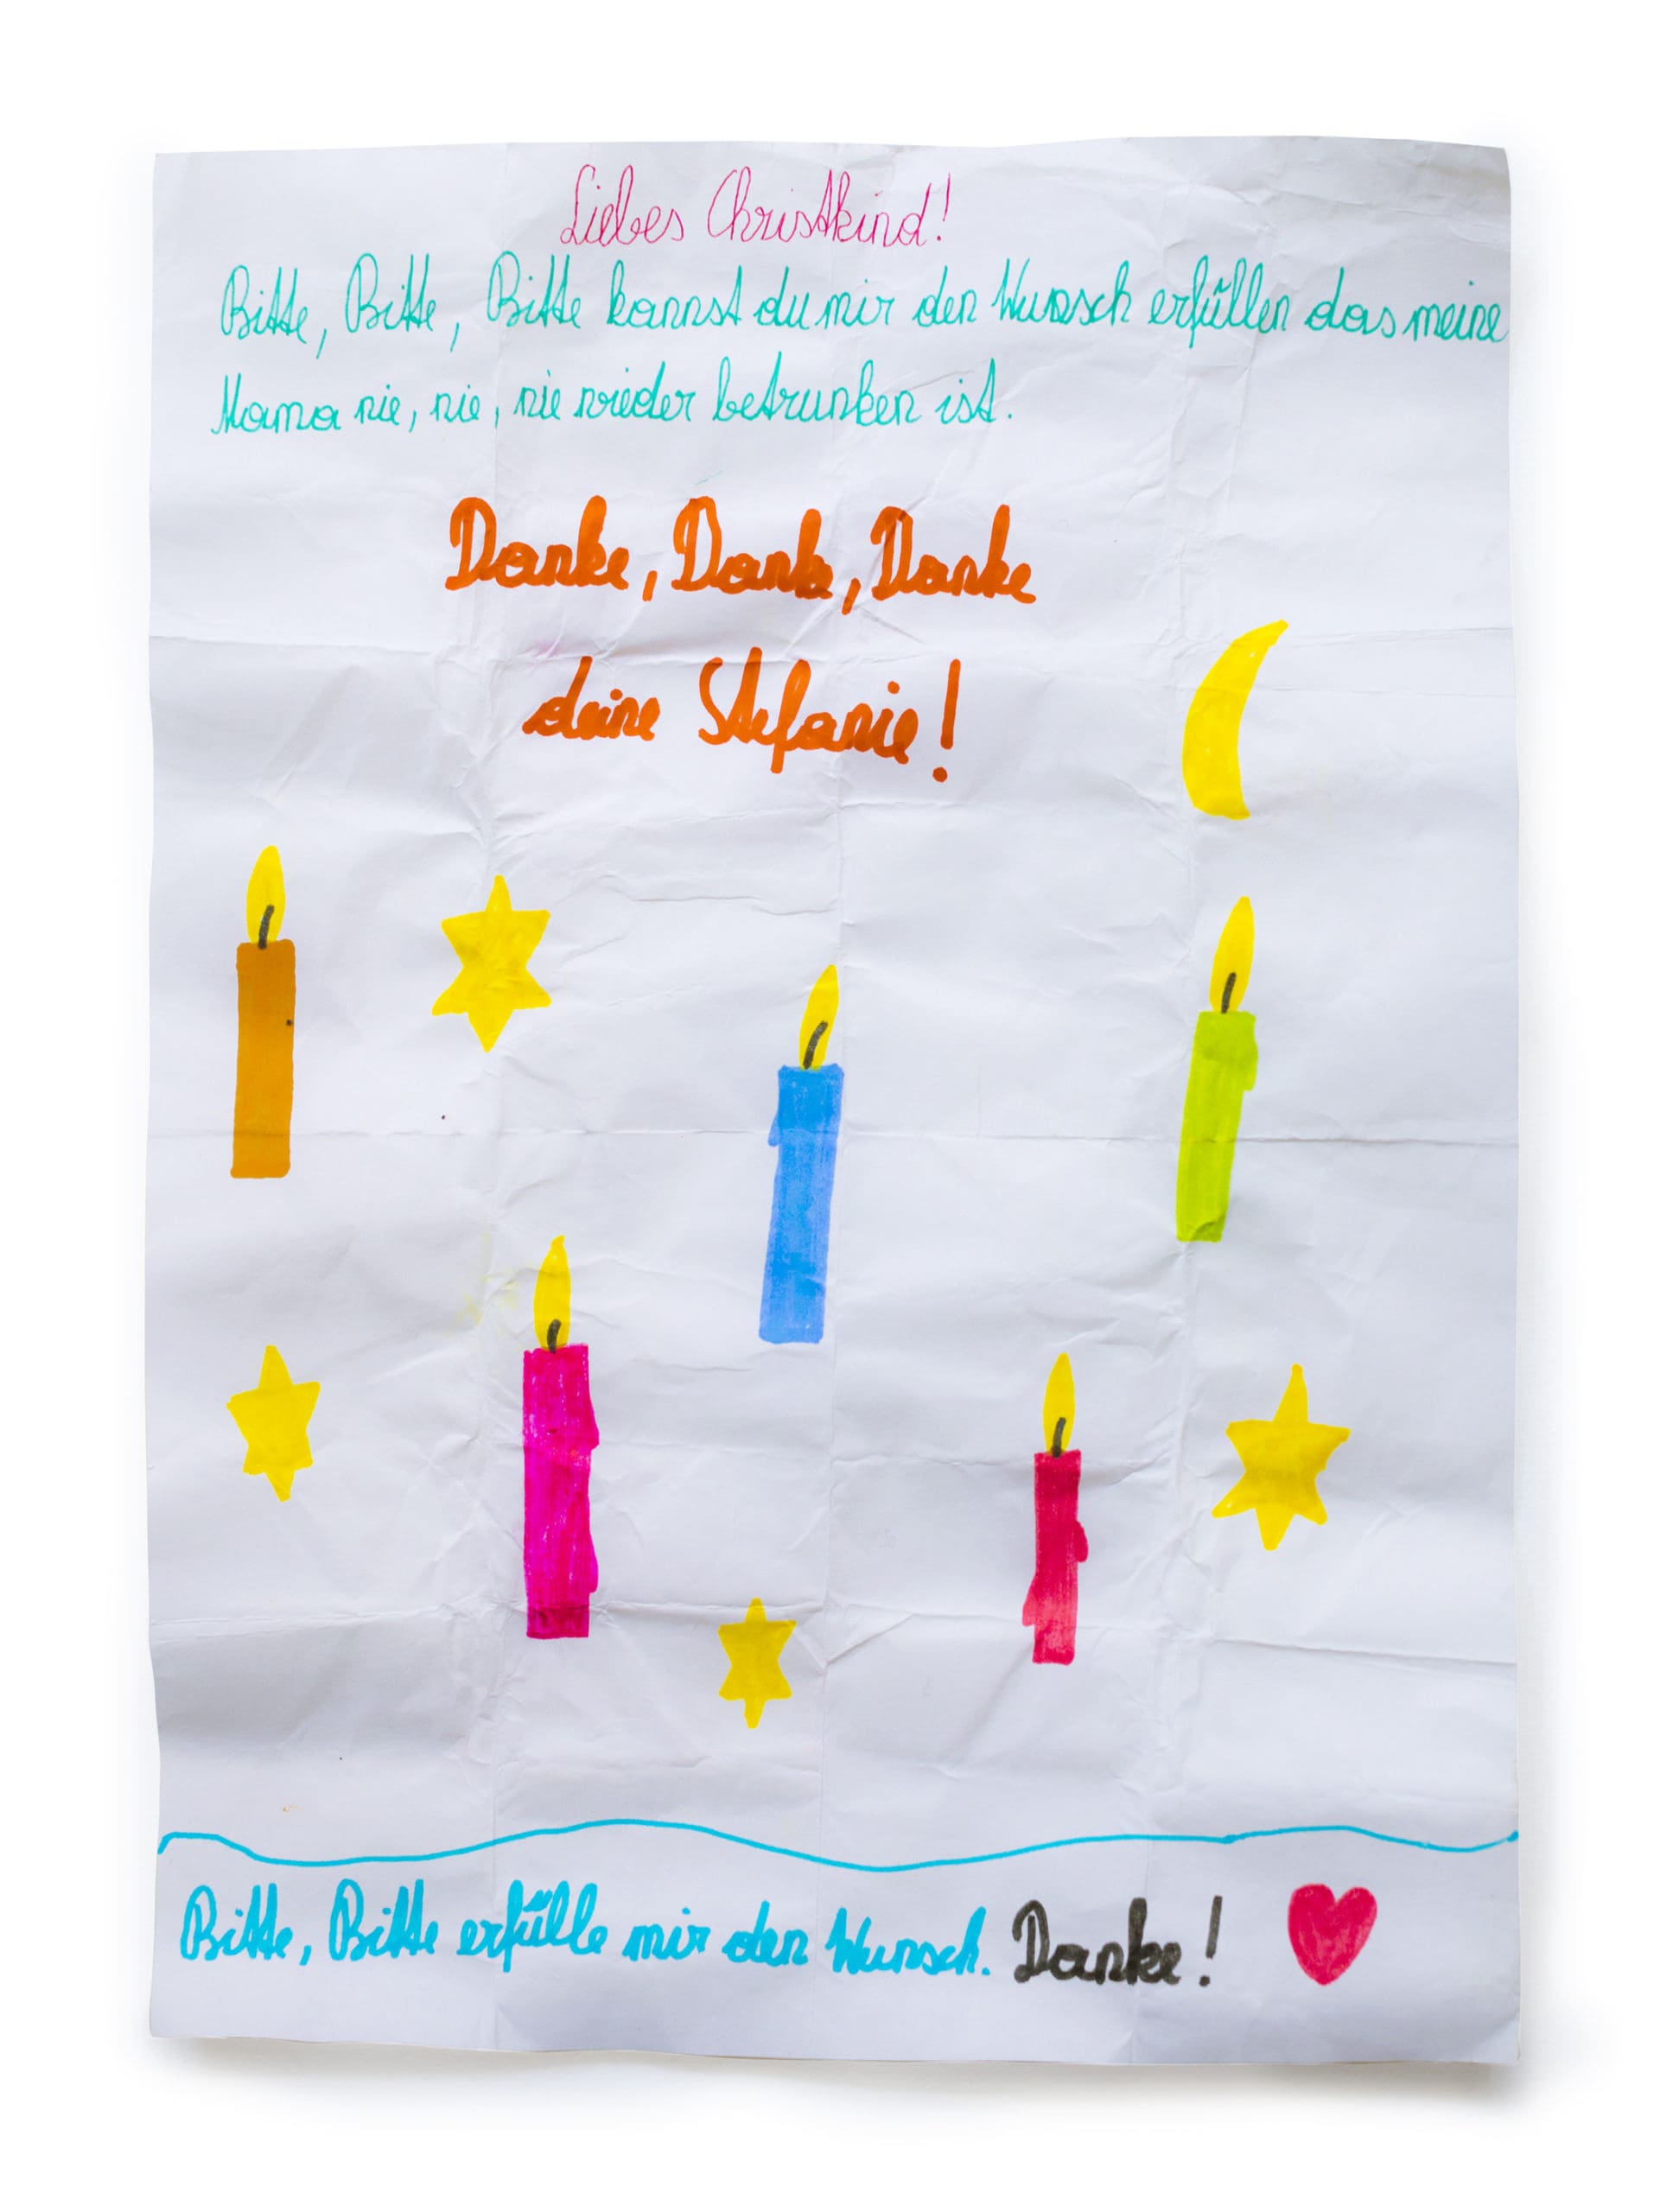 Liebes Christkind!
Bitte, Bitte, Bitte kannst du mir den Wunsch erfüllen das meine
Mama nie, nie, nie wieder betrunken ist.
Danke, Danke, Danke
deine Stefanie!
Bitte, Bitte erfülle mir den Wunsch. Danke!